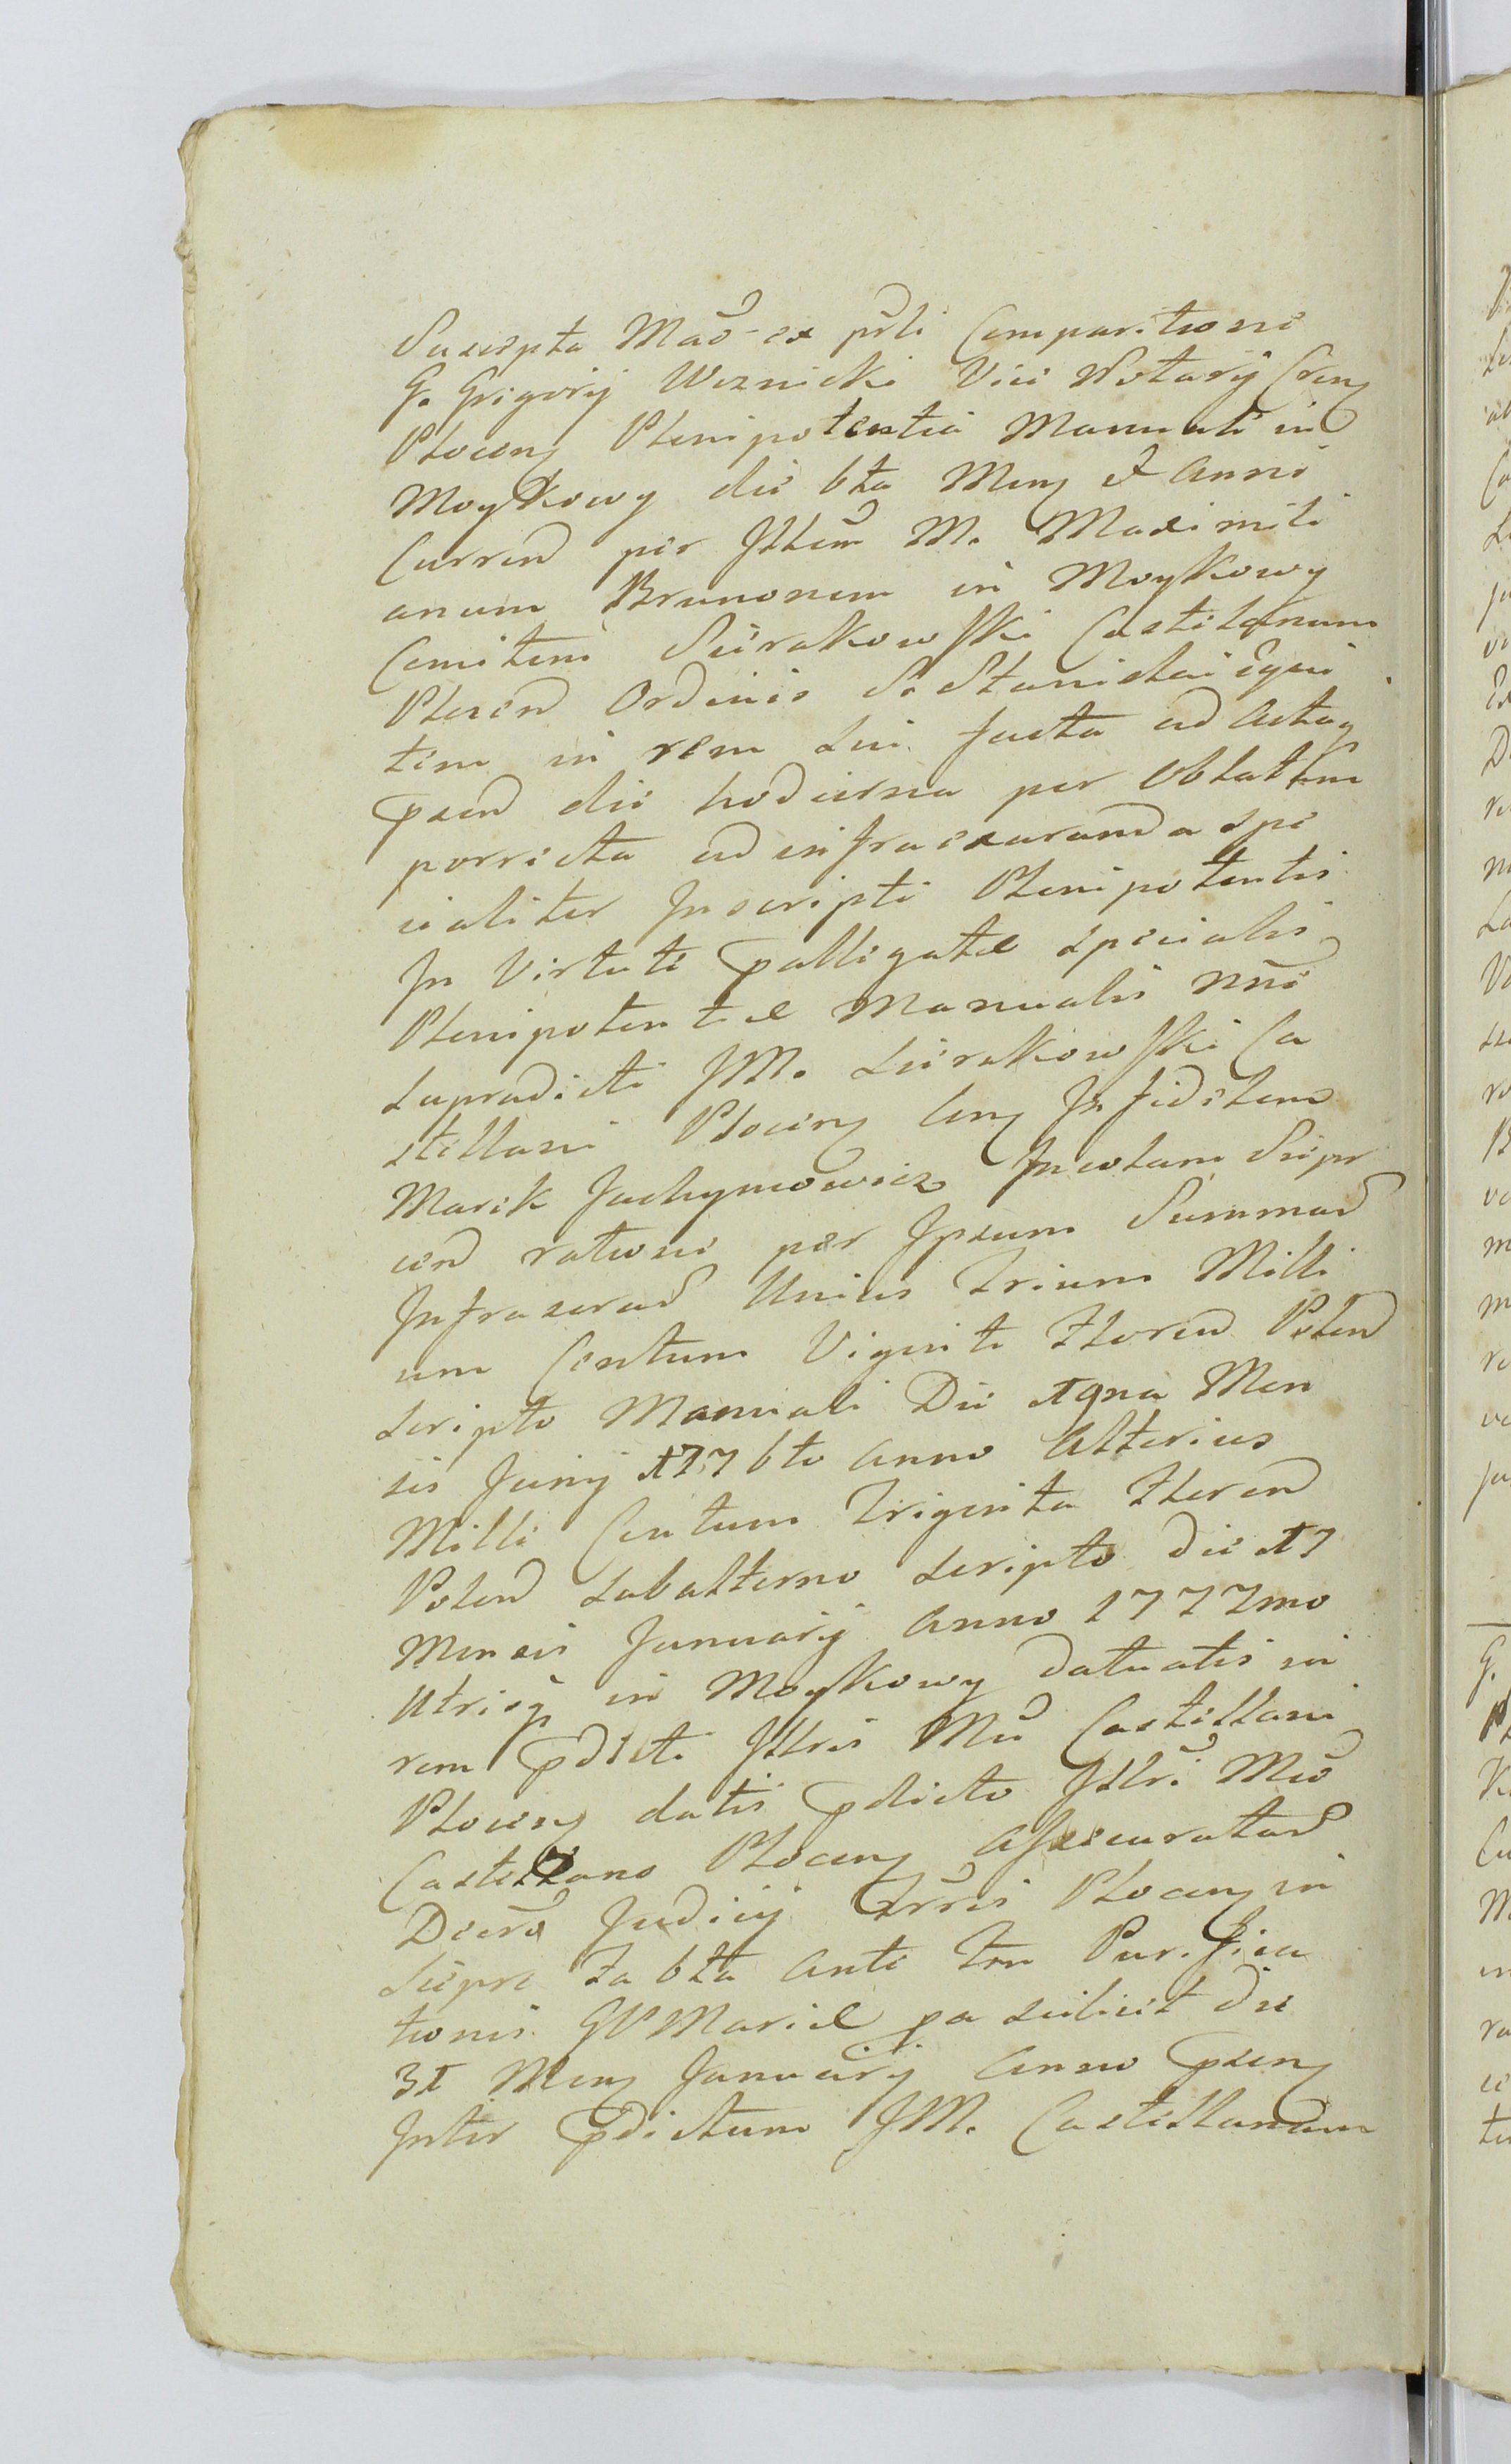 Suscepta Mão ex pñli Comparitione
G. Grigorij Woznicki Vice Notarij Cren
Plocen Plenipotentia Manuali in
Moykowy die 6ta Men et Anni
Curren per Jllem M. Maximili
anum Brunonem in Moykowy
Comitem Sierakowski Castelanum
Plocen Ordinis S. Stanislai Equi
tem in rem sui facta ad Acta
psen die hodierna per Oblatam
porrecta ad infra exaranda spe
cialiter Inscripti Plenipotentis
In Virtute palligatae specialis
Plenipotentae Manualis nñe
supradicti JM. Sierakowski Ca
stellani Plocen Con Jnfidelem
Marek Jachymowicz Incolam Siepr
cen ratione per Ipsum Summar
Infrascrar Unius Trium Milli
um Centum Viginti Floren Polon
scripto Manuali Die 19na Men
sis Junij 1776to Anno Alterius
Mille Centum Triginta Floren
Polon subalterno scripto die 17
Mensis Januarij Anno 1777mo
Utrisq in Moykowy datuatis in
rem pdicti Jllris Mci Castellani
Plocen datis pdicto Jllri Mco
Castellano Plocen Assecuratar
Decro Judicij Trris Plocen in
Siepre Fa 6ta Ante Fm Purifica
tionis BV Mariae pa scilicet die
31 Men Januarij Anno psen
Inter pdictum JM. Castellanum